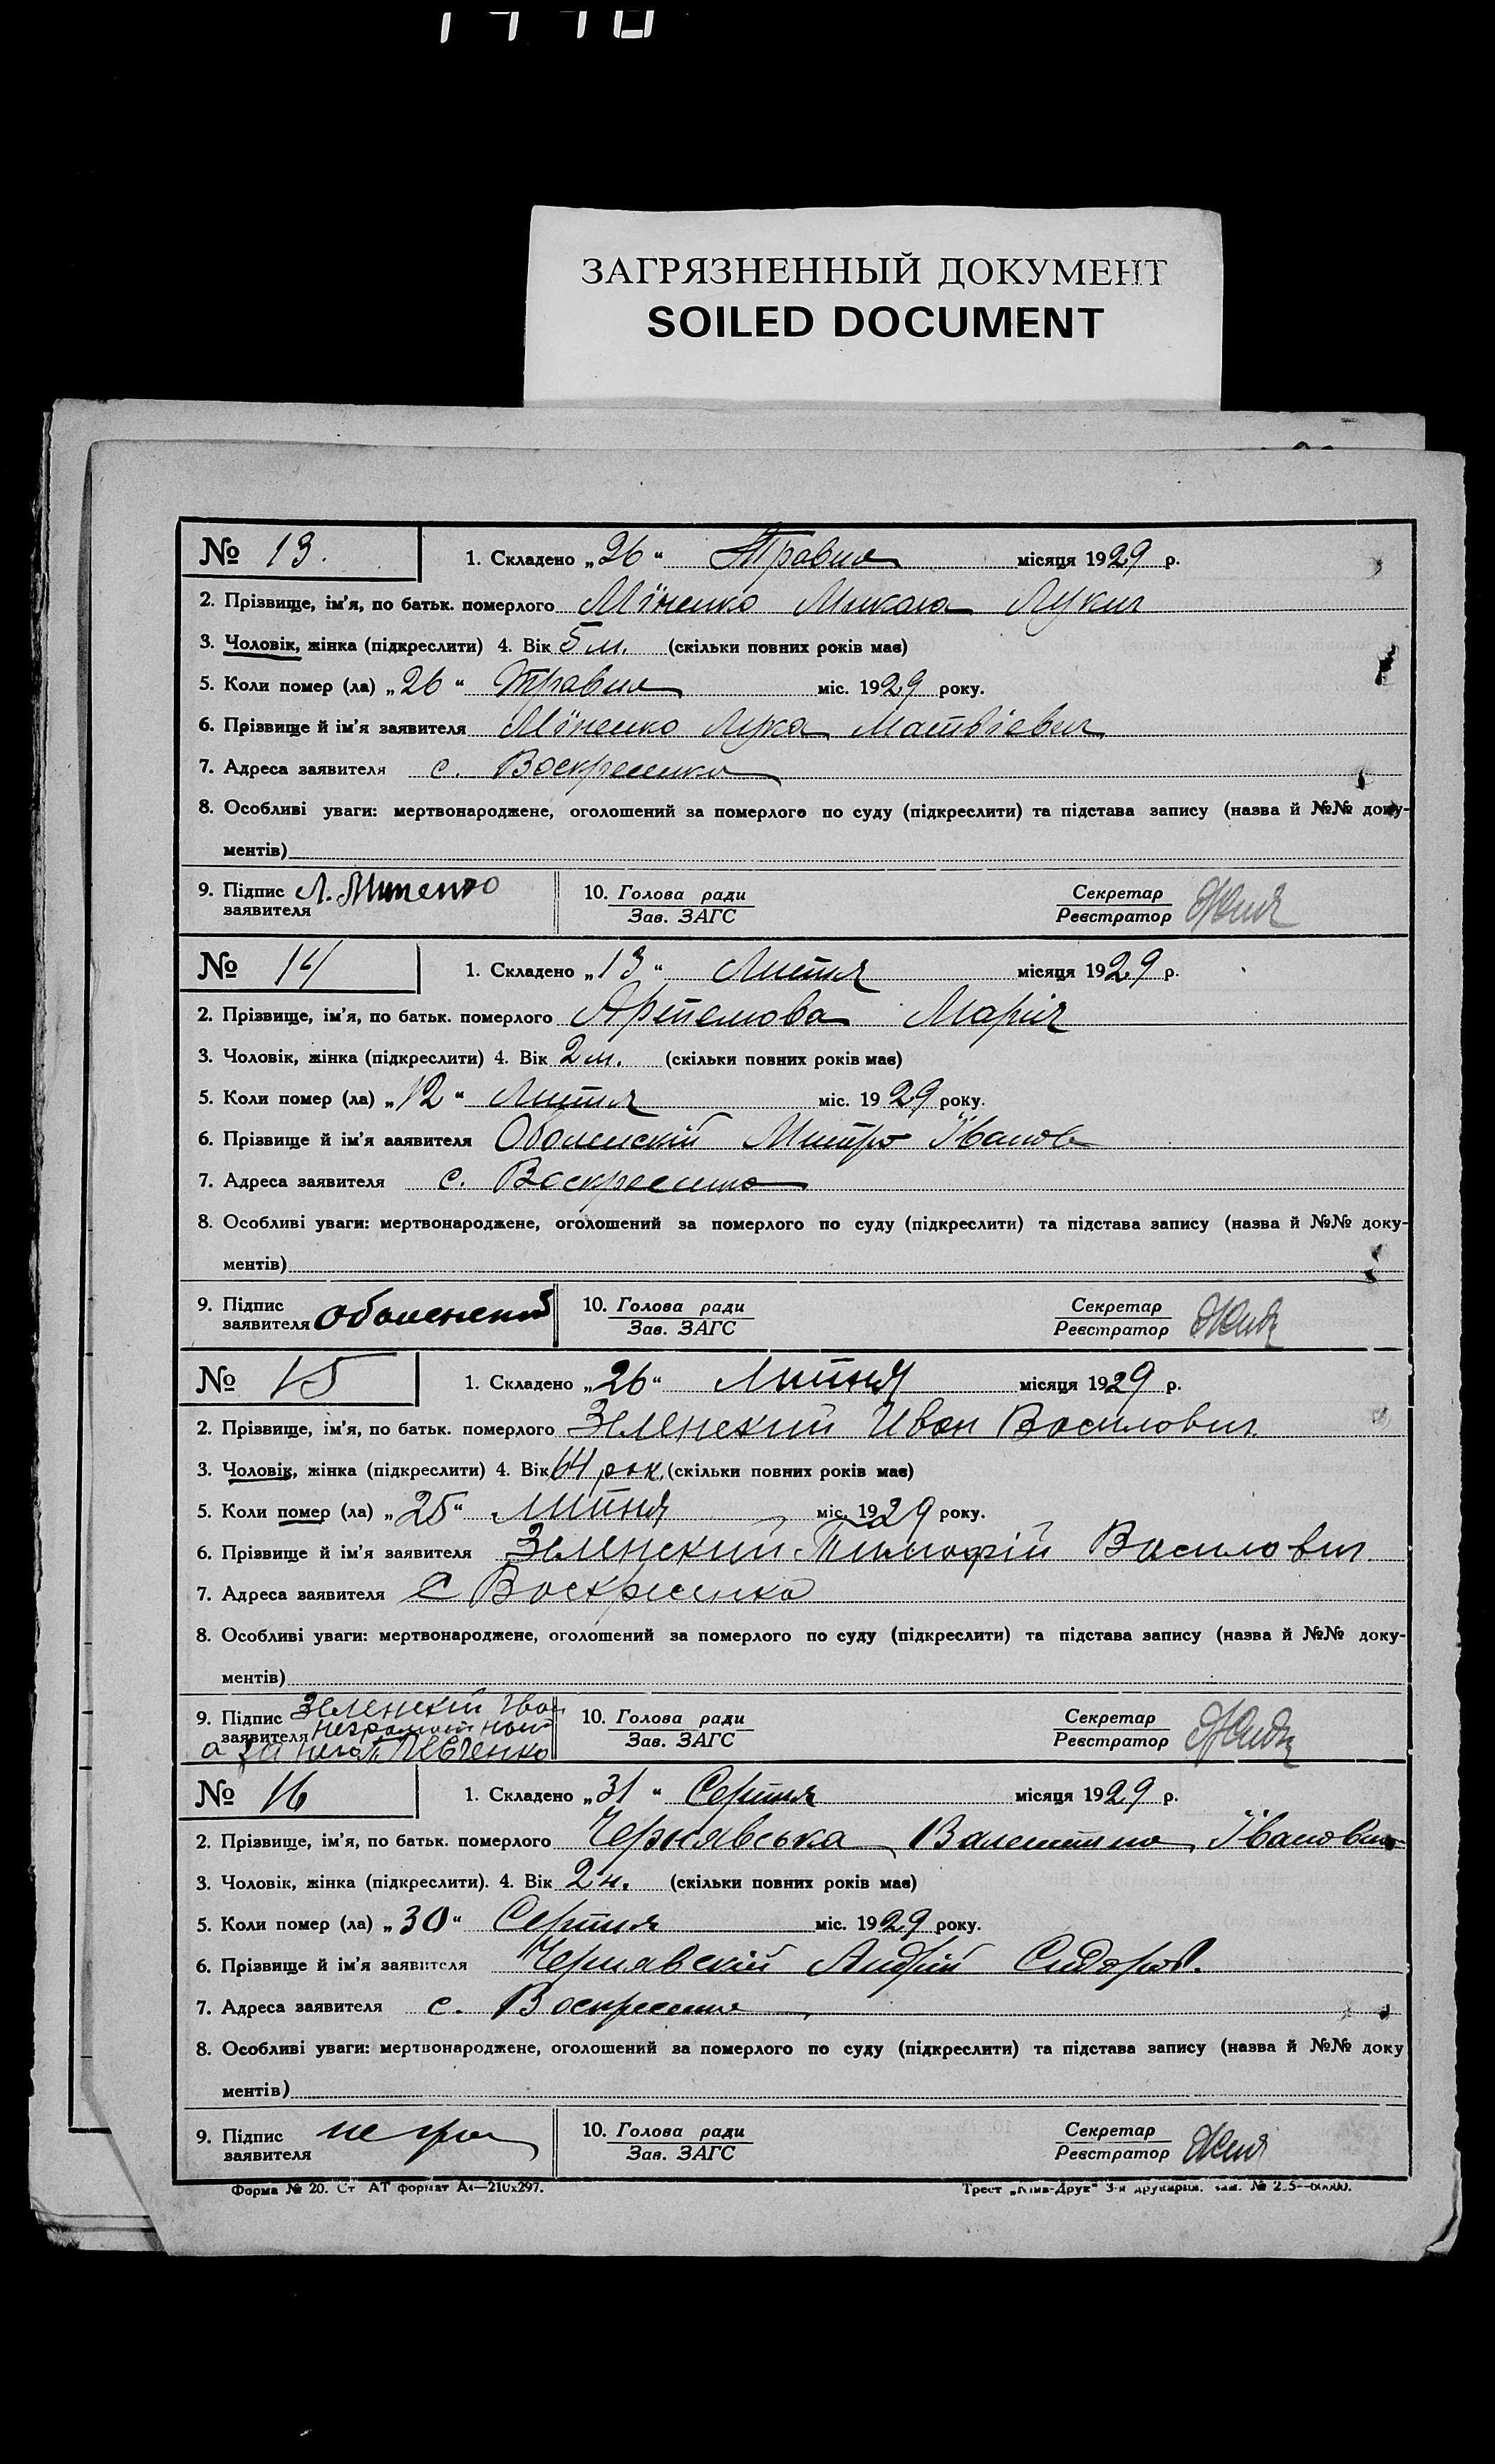 ЗАГРЯЗНЕННЫЙ ДОКУМЕНТ
SOILED DOCUMENT
№ 13. 1. Складено „26“ Травня місяця 1929 р.
2. Прізвище, ім'я, по батьк. померлого Міненко Микола Лукич
3. Чоловік, жінка (підкреслити) 4. Вік 5 м. (скільки повних років має)
5. Коли помер (ла) „26“ Травня міс. 1929 року.
6. Прізвище й ім'я заявителя Міненко Лука Матвієвич
7. Адреса заявителя с. Воскресенка
8. Особливі уваги: мертвонароджене, оголошений за померлого по суду (підкреслити) та підстава запису (назва й №№ доку-
ментів)
9. Підпис заявителя Л. Миненко 10. Голова ради Зав. ЗАГС Секретар Реєстратор
№ 14 1. Складено „13“ Липня місяця 1929 р.
2. Прізвище, ім'я, по батьк. померлого Артемова Марія
3. Чоловік, жінка (підкреслити) 4. Вік 2 м. (скільки повних років має)
5. Коли помер (ла) „12“ Липня міс. 1929 року.
6. Прізвище й ім'я заявителя Оболенскій Митро Іванов
7. Адреса заявителя с. Воскресенка
8. Особливі уваги: мертвонароджене, оголошений за померлого по суду (підкреслити) та підстава запису (назва й №№ доку-
ментів)
9. Підпис заявителя Оболенский 10. Голова ради Зав. ЗАГС Секретар Реєстратор
№ 15 1. Складено „26“ Липня місяця 1929 р.
2. Прізвище, ім'я, по батьк. померлого Зеленский Иван Василович
3. Чоловік, жінка (підкреслити) 4. Вік 64 рок. (скільки повних років має)
5. Коли помер (ла) „25“ Липня міс. 1929 року.
6. Прізвище й ім'я заявителя Зеленский Тимофій Василович
7. Адреса заявителя с Воскресенка
8. Особливі уваги: мертвонароджене, оголошений за померлого по суду (підкреслити) та підстава запису (назва й №№ доку-
ментів)
9. Підпис заявителя Зеленский Іван неграмотний а за него Певченко 10. Голова ради Зав. ЗАГС Секретар Реєстратор
№ 16 1. Складено „31“ Серпня місяця 1929 р.
2. Прізвище, ім'я, по батьк. померлого Чернявська Валентина Івановна
3. Чоловік, жінка (підкреслити). 4. Вік 2 н. (скільки повних років має)
5. Коли помер (ла) „30“ Серпня міс. 1929 року.
6. Прізвище й ім'я заявителя Чернявскій Андрій Сидоров.
7. Адреса заявителя с. Воскресенка
8. Особливі уваги: мертвонароджене, оголошений за померлого по суду (підкреслити) та підстава запису (назва й №№ доку
ментів)
9. Підпис заявителя не гра 10. Голова ради Зав. ЗАГС Секретар Реєстратор
Форма № 20. Ст АТ формат А4—210х297. Трест „Київ-Друк“ 3-я друкарня.